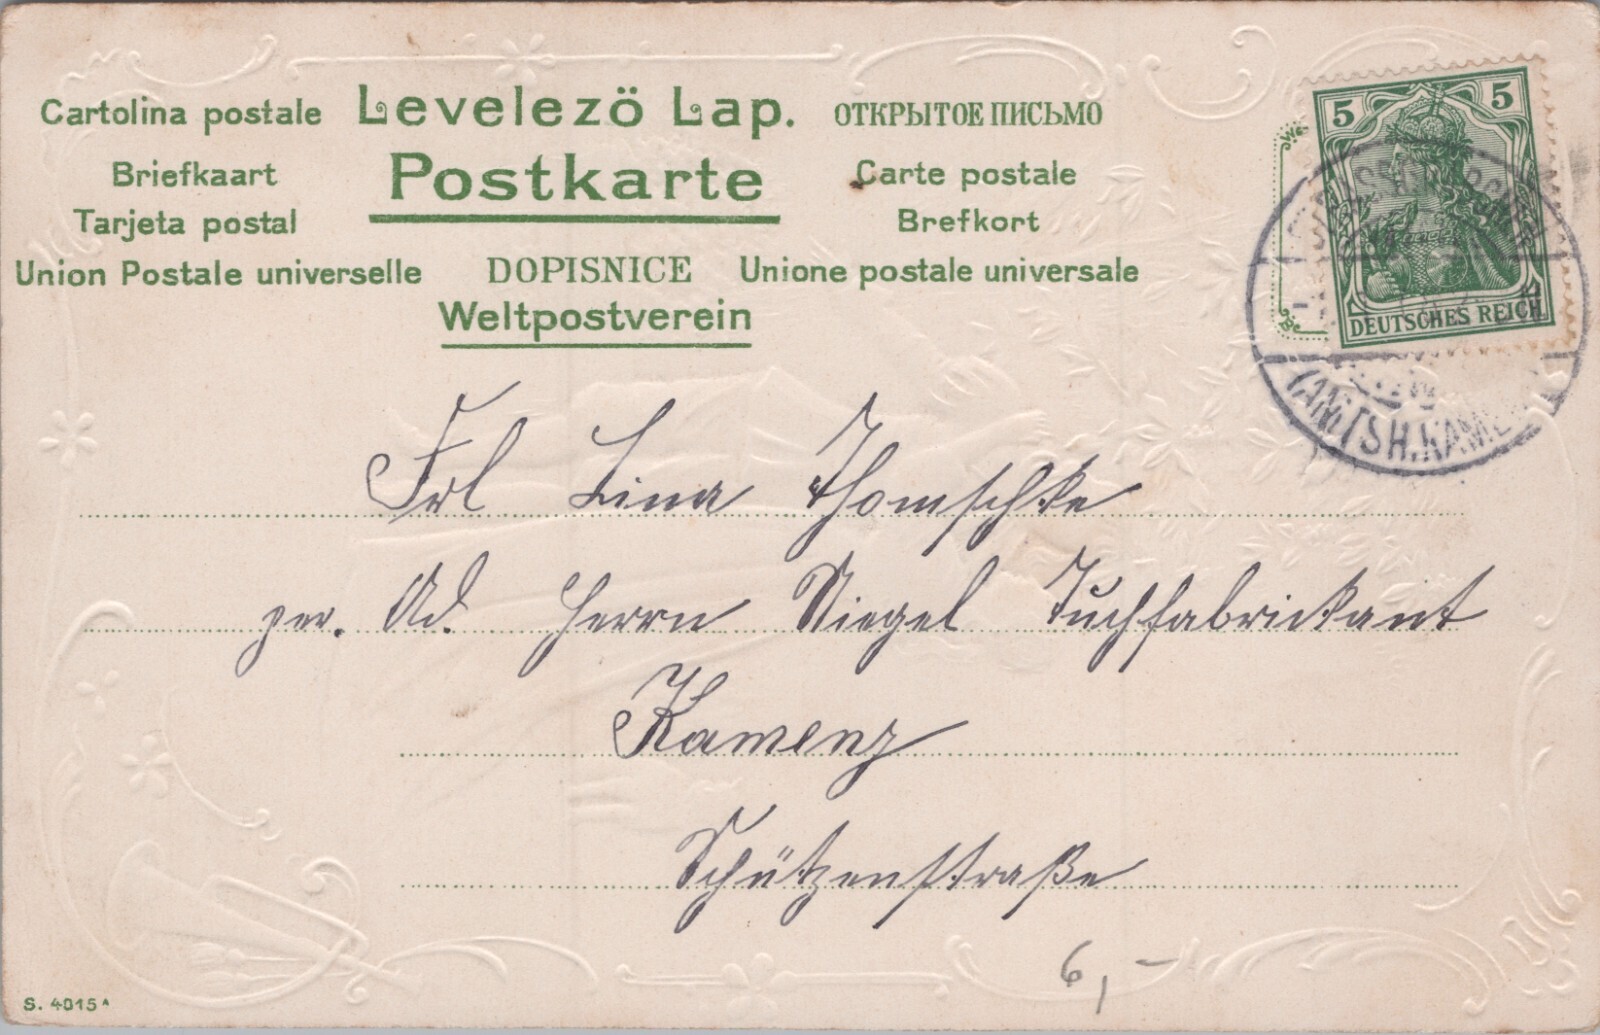 Cartolina postale Levelezö Lap. ОТКРЫТОЕ ПИСЬМО
Briefkaart Postkarte Carte postale
Tarjeta postal Brefkort
Union Postale universelle DOPISNICE Unione postale universale
Weltpostverein
5 5
DEUTSCHES REICH
(AMTSH. KAMENZ
Frl Lina Thomschke
per. Ad. Herrn Niegel Tuchfabrickant
Kamenz
Schützenstraße
6,-
S. 4015ᴬ